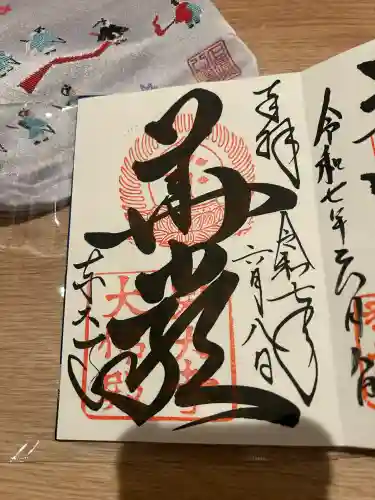 令和七年六月八日
奉拝
令和七年
六月八日
華嚴
東大寺
大仏殿